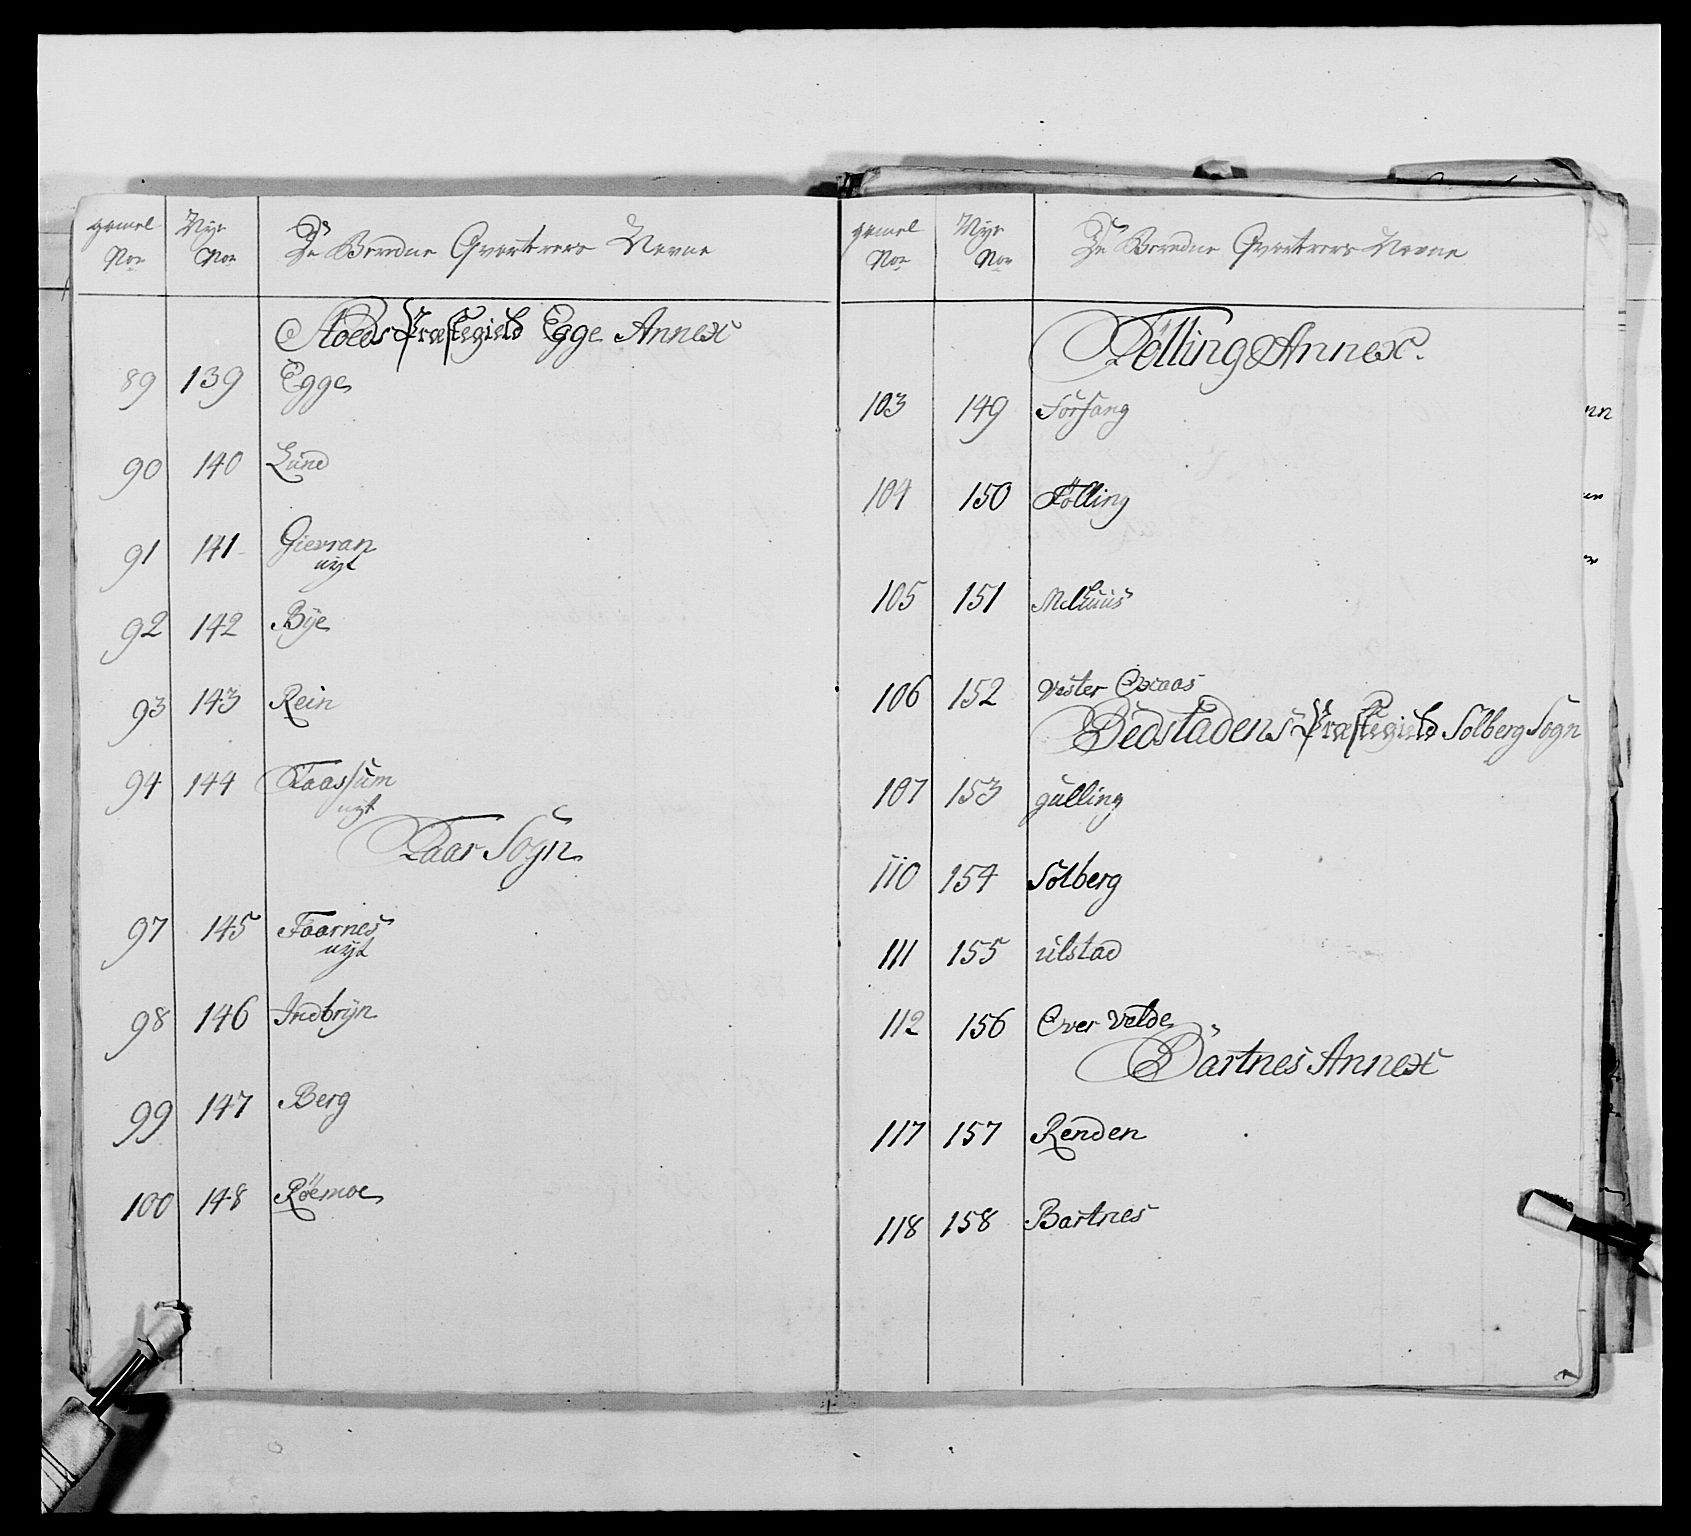 gamel Nye De Beredne Qvarterers Navne
No No
Stoeds Præstegield Egge Annex
89 139 Egge
90 140 Lund
91 141 Gievran
nyt
92 142 Bÿe
93 143 Rein
94 144 Faassum
nyt
Qvaar Sogn
97 145 Faarnes
nyt
98 146 Indbrÿn
99 147 Berg
100 148 Röemoe
gamel Nye De Beredne Qvarterers Navne
No No
Fölling Annex.
103 149 Forfang
104 150 Fölling
105 151 Melhuus
106 152 Vester Oxaas
Bedstadens Præstegield Solberg Sogn
107 153 gulling
110 154 Solberg
111 155 ulstad
112 156 Over Velde
Bartnes Annex
117 157 Renden
118 158 Bartnes